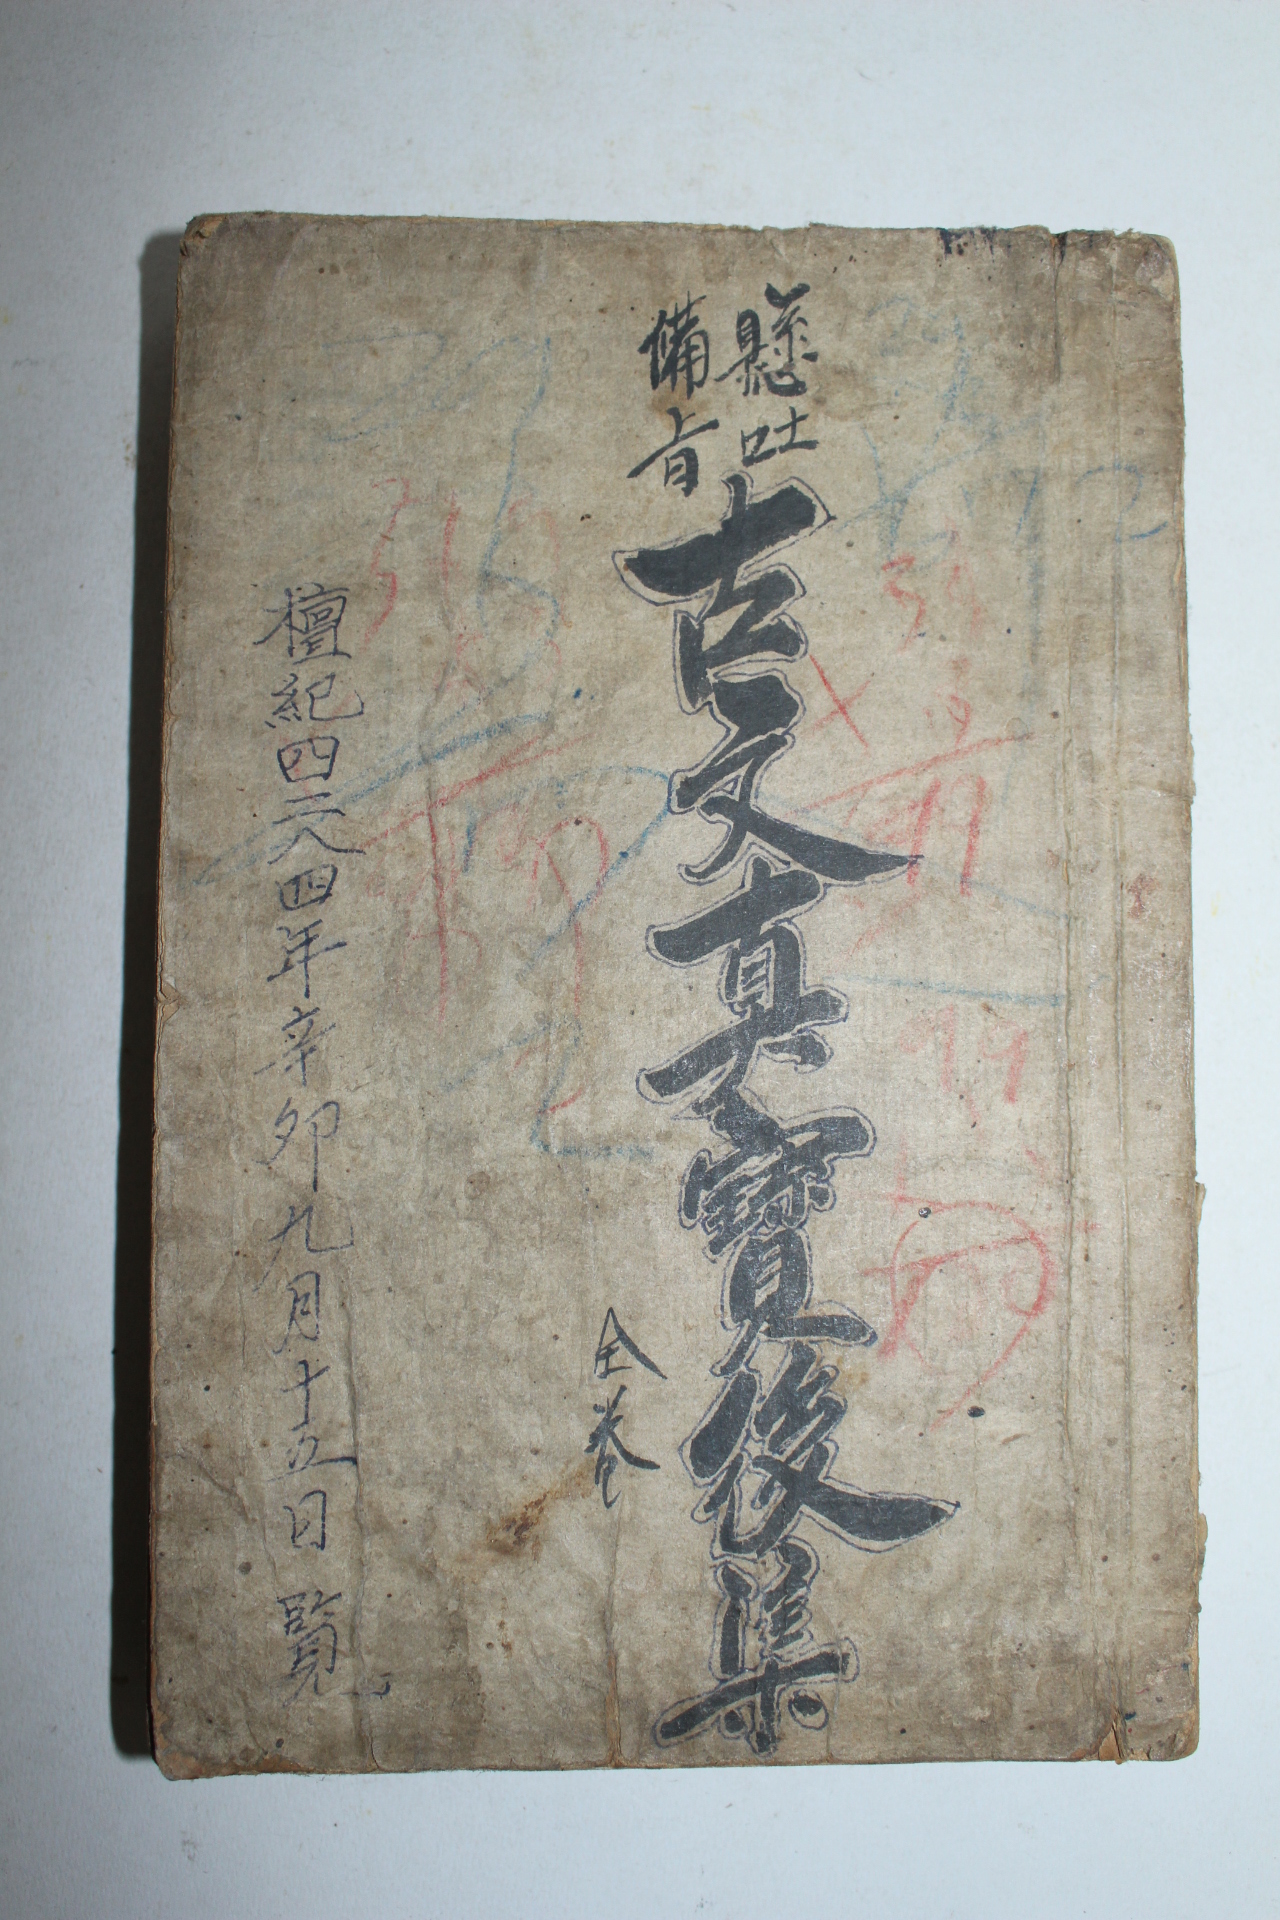 懸吐
備旨
古文真寶後集
全卷
檀紀四二八四年辛卯九月十五日 覽